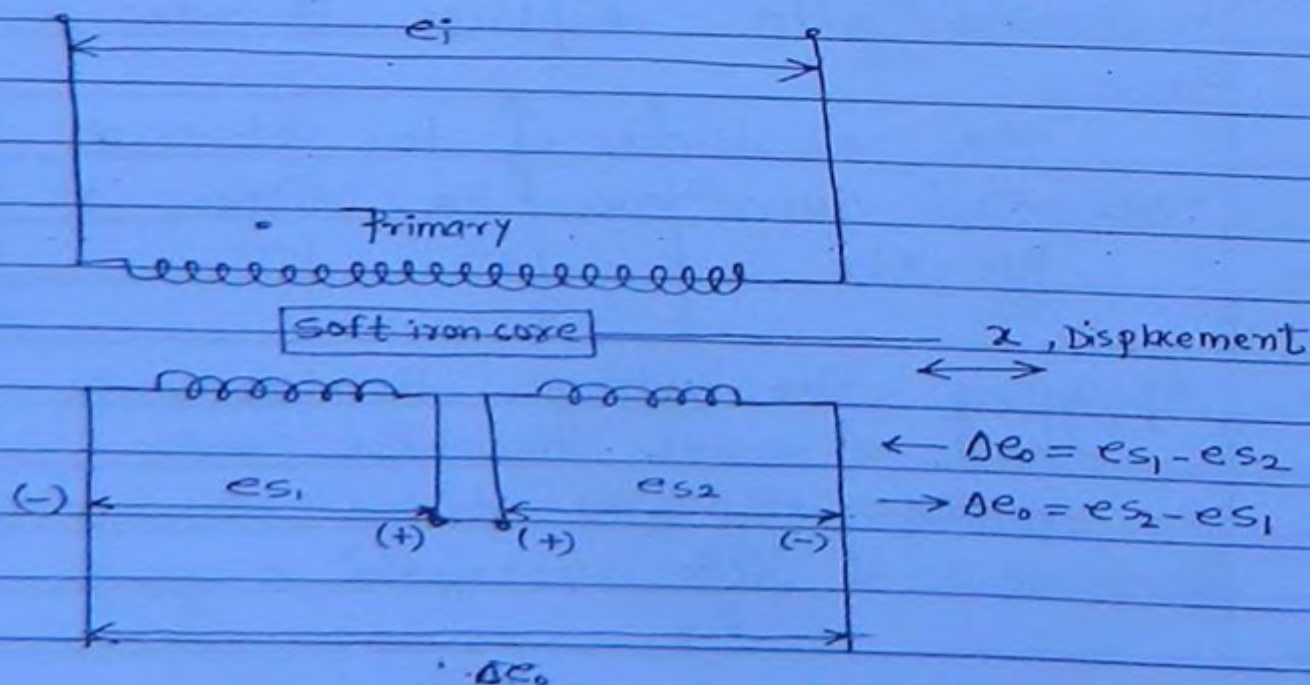 ei
Primary
Soft iron core
x, Displacement
← Δe₀ = es₁ - es₂
(-) es₁ es₂
→ Δe₀ = es₂ - es₁
(+) (+) (-)
Δe₀